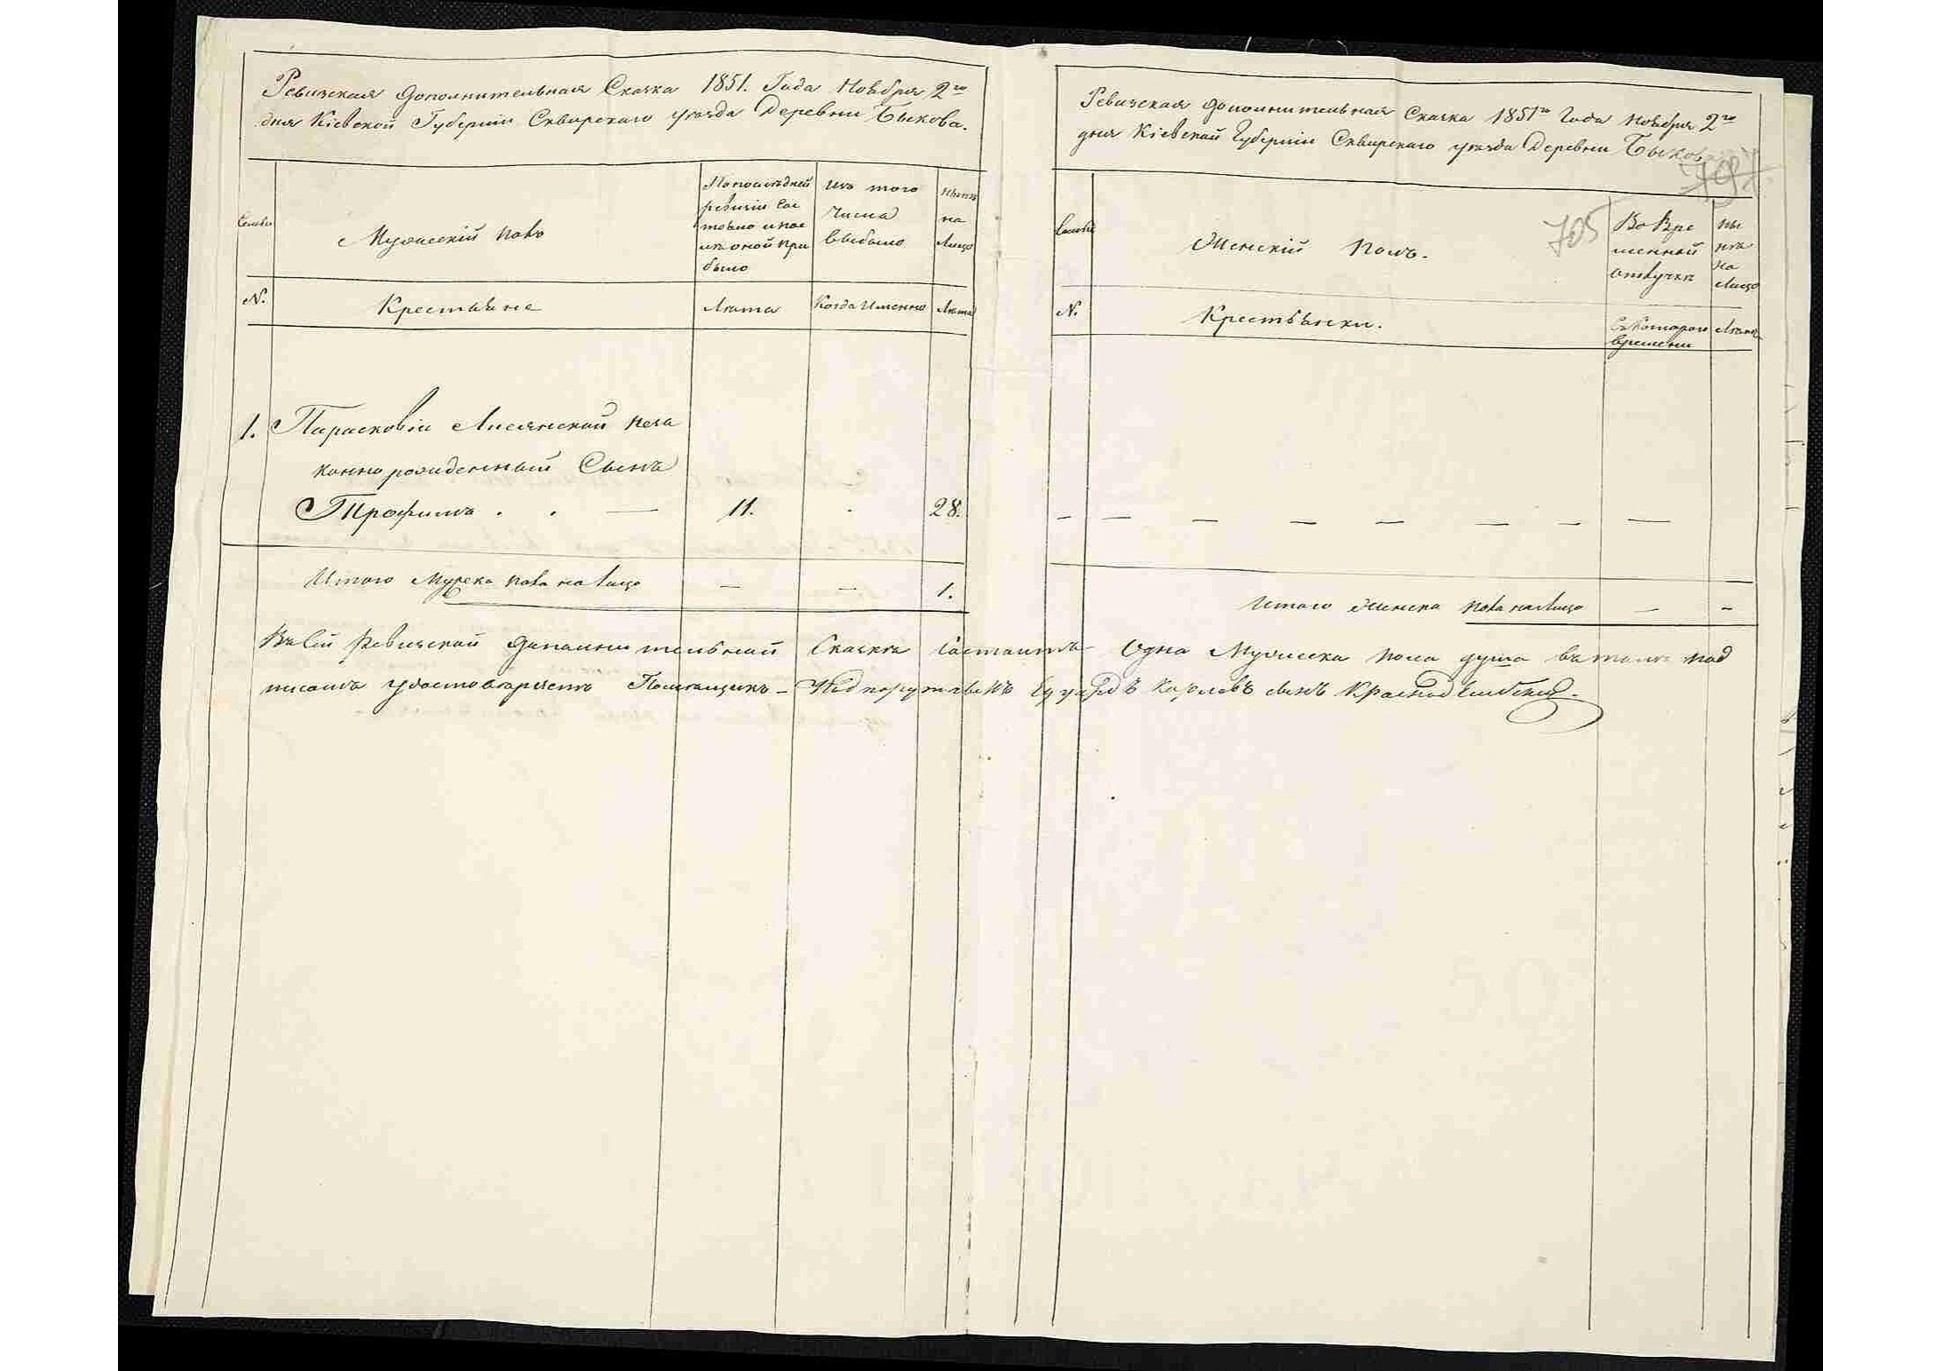 Ревизская дополнительная Сказка 1851. Года Ноября 2го
дня Кіевской Губерніи Сквирскаго уѣзда Деревни Быкова.
Семьи
Мужескій полъ
По последней
ревизіи сос
тояло и пос
лѣ оной при
было
Изъ того
числа
выбыло
Нынѣ
на
Лицо
N.
Крестьяне
Лѣта
Когда Именно
Лѣта
1. Парасковіи Лисянской неза
конно рожденный Сынъ
Трофимъ . . —
11.
28.
Итого Мужска пола на лицо — — 1.
Ревизская дополнительная Сказка 1851го Года Ноября 2го
дня Кіевской Губерніи Сквирскаго уѣзда Деревни Быков
705
Семьи
Женскій Полъ.
Во Вре
менной
отлучкѣ
Ны
нѣ
на
Лицо
N.
Крестьянки.
Съ Котораго
времени
Лѣта
— — — — — — — —
Итого Женска пола налицо — –
Въ сей ревизской дополнительной Сказкѣ состоитъ Одна Мужеска пола душа въ томъ под
писомъ удостовѣряетъ Помѣщикъ – Подпоручикъ Едуардъ Карловъ сынъ